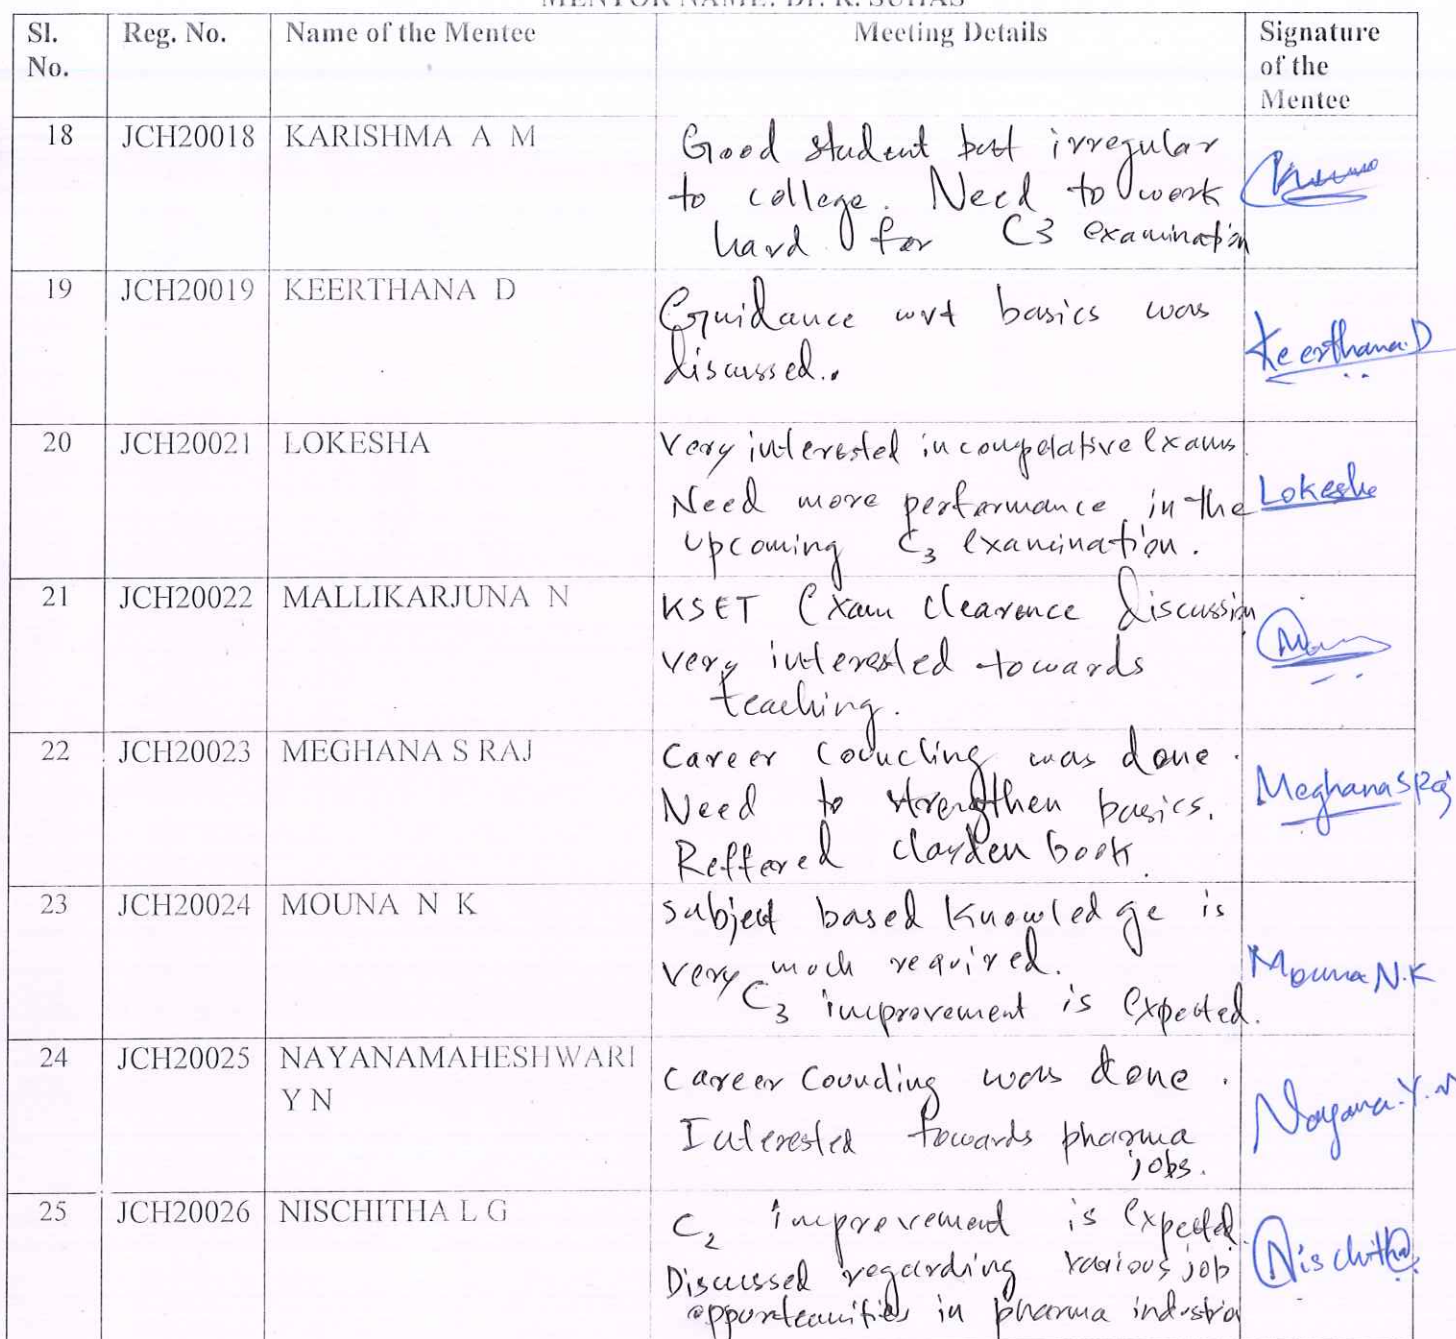 MENTOR NAME: Dr. R. SUHAS
Sl. No. Reg. No. Name of the Mentee Meeting Details Signature of the Mentee
18 JCH20018 KARISHMA A M Good student but irregular
to college. Need to work
hard for C3 examination
19 JCH20019 KEERTHANA D Guidance wrt basics was
discussed.. Keerthana.D
20 JCH20021 LOKESHA Very interested in compelative exams.
Need more performance in the Lokesha
upcoming C3 examination.
21 JCH20022 MALLIKARJUNA N KSET Exam clearence discussion
very interested towards
teaching.
22 JCH20023 MEGHANA S RAJ Career Councling was done.
Need to strengthen basics. Meghana S Raj
Reffered clayden book.
23 JCH20024 MOUNA N K Subject based knowledge is
very much required. Mouna N.K
C3 improvement is expected.
24 JCH20025 NAYANAMAHESHWARI Career Counding was done.
Y N Interested towards pharma Nayana.Y.N
jobs.
25 JCH20026 NISCHITHA L G C2 improvement is expected.
Discussed regarding various job Nischitha
oppurteunities in pharma industria